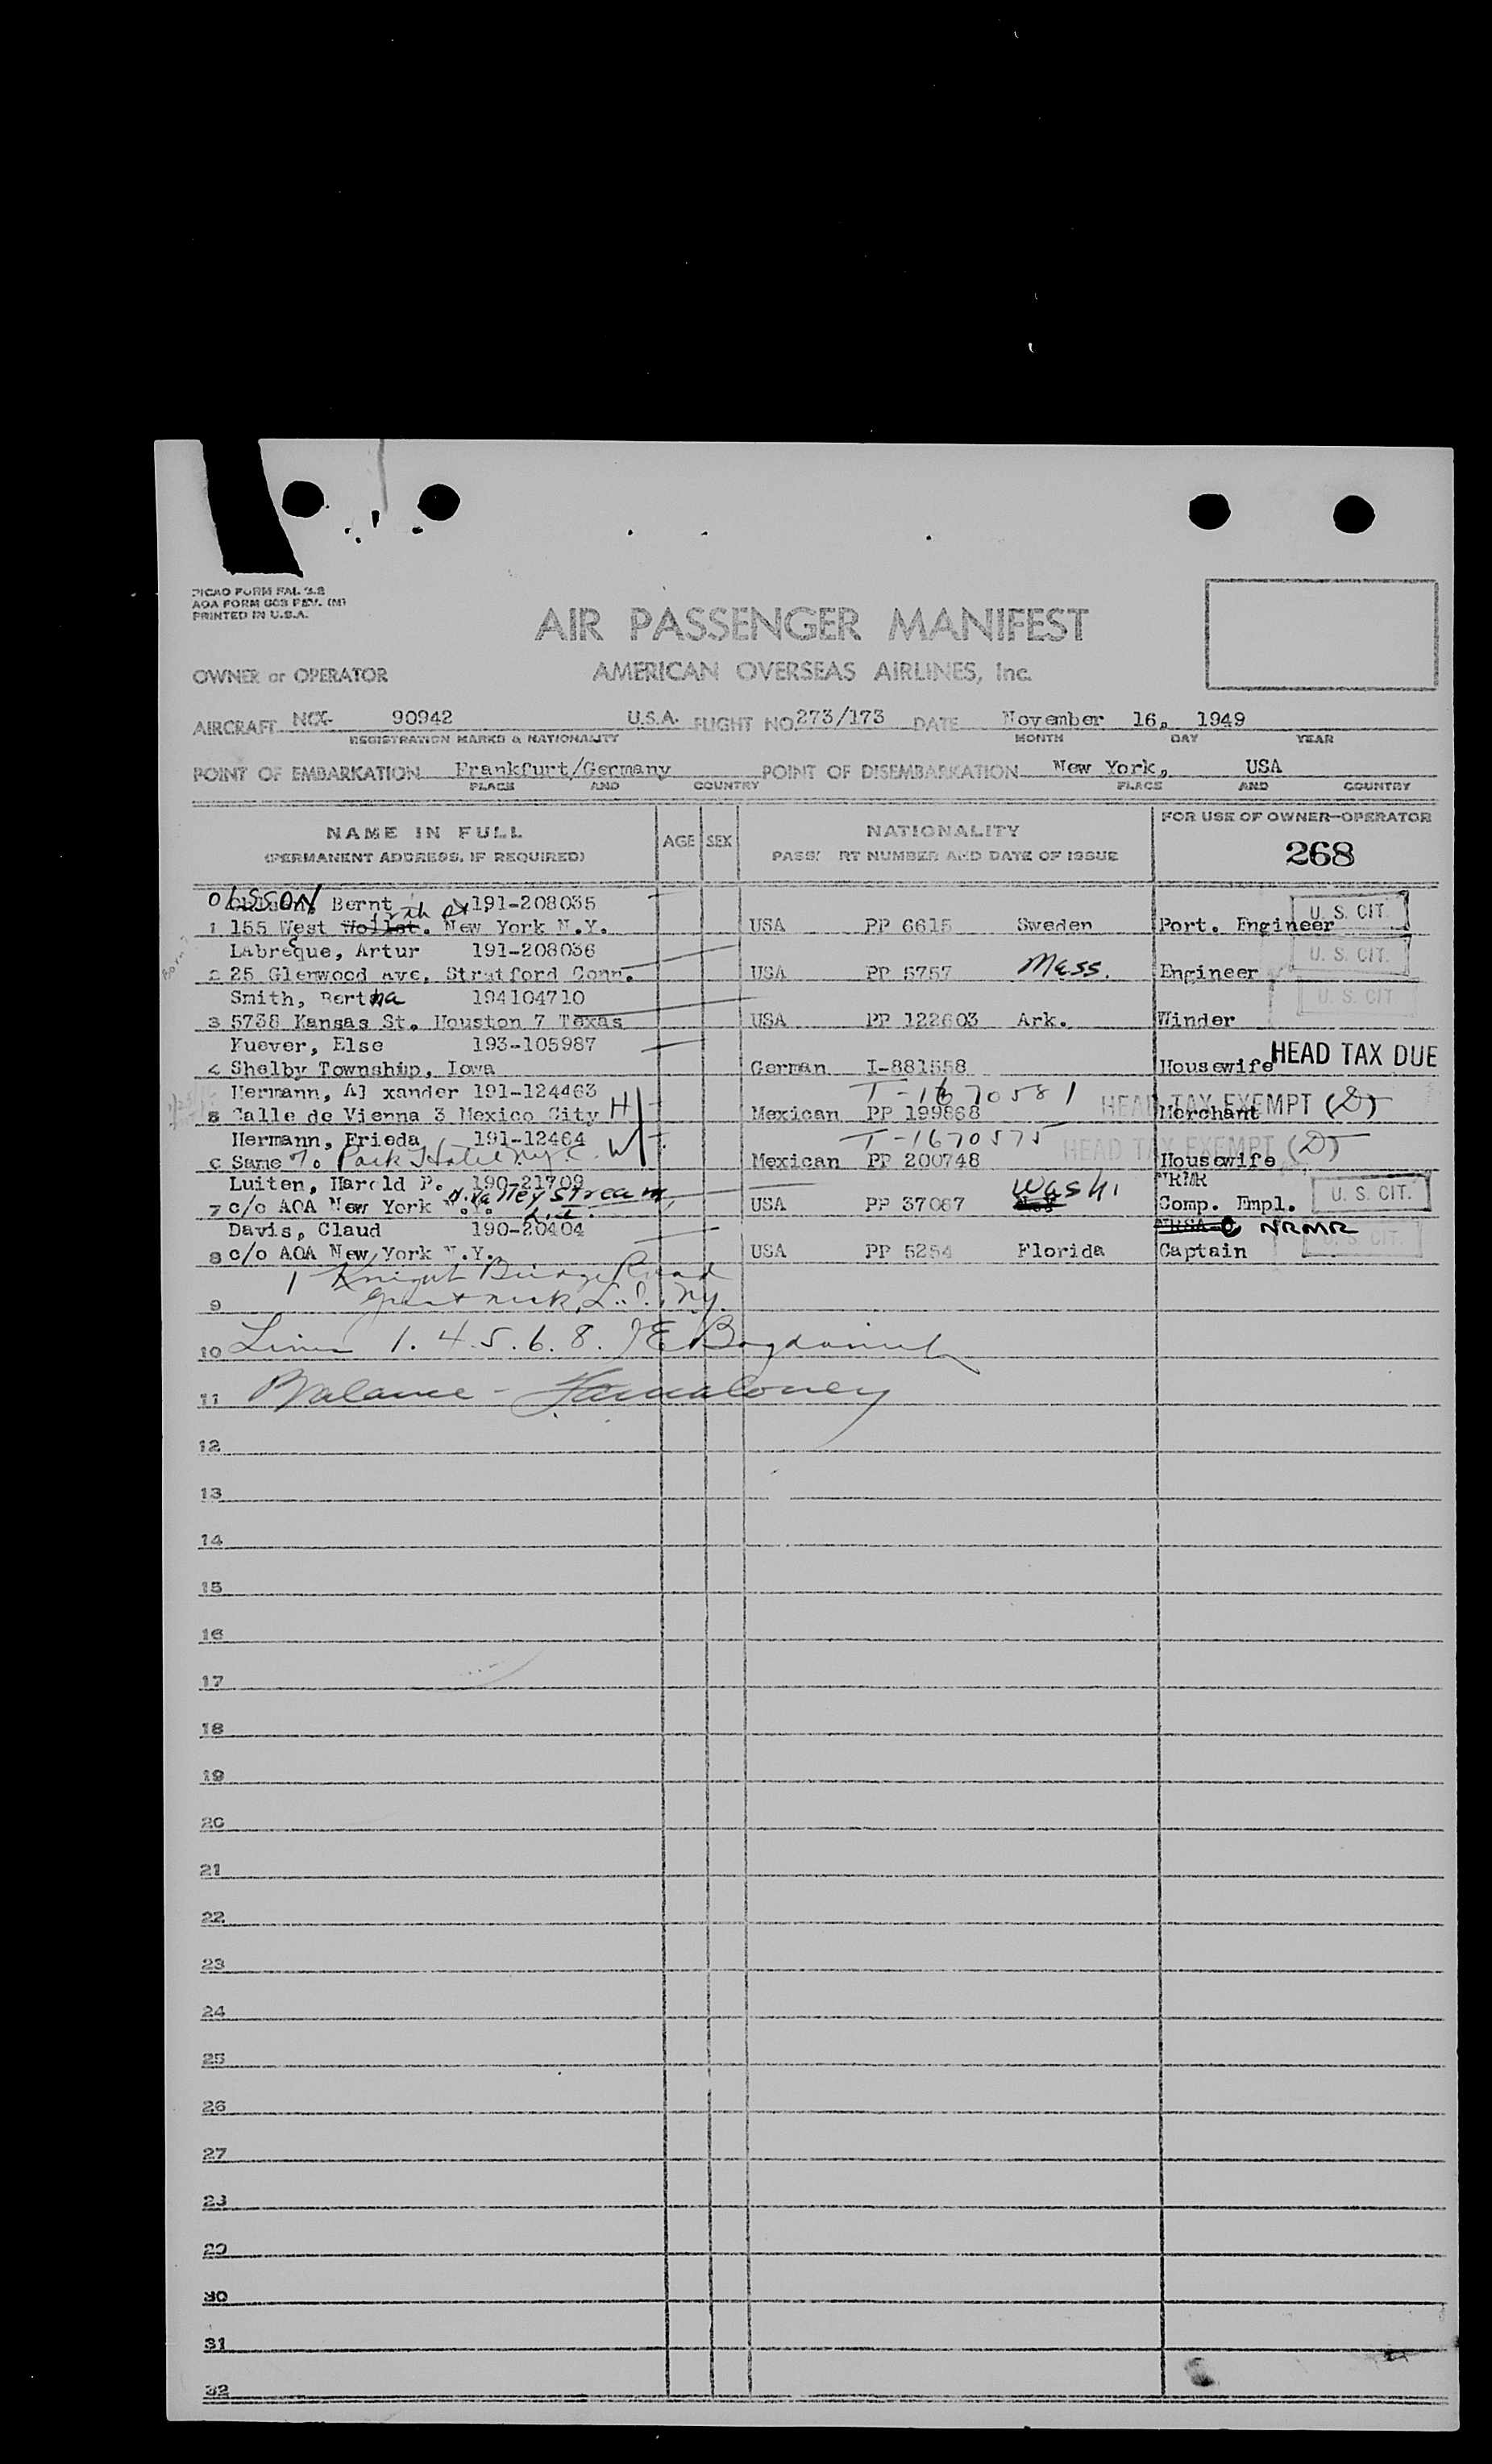 PICAO FORM FAL 3.2
AOA FORM 603 REV. (M)
PRINTED IN U.S.A.
AIR PASSENGER MANIFEST
OWNER or OPERATOR AMERICAN OVERSEAS AIRLINES, Inc.
AIRCRAFT NCX- 90942 U.S.A. FLIGHT NO. 273/173 DATE November 16, 1949
REGISTRATION MARKS & NATIONALITY MONTH DAY YEAR
POINT OF EMBARKATION Frankfurt/Germany POINT OF DISEMBARKATION New York, USA
PLACE AND COUNTRY PLACE AND COUNTRY
NAME IN FULL AGE SEX NATIONALITY FOR USE OF OWNER-OPERATOR
(PERMANENT ADDRESS, IF REQUIRED) PASS RT NUMBER AND DATE OF ISSUE 268
OLSSON Bernt 191-208035 U. S. CIT.
1 155 West 12th St. New York N.Y. USA PP 6615 Sweden Port. Engineer
Labreque, Artur 191-208036 U. S. CIT.
2 25 Glenwood ave, Stratford Conn. USA PP 5757 Mass. Engineer
Smith, Bertha 194104710 U. S. CIT
3 5738 Kansas St. Houston 7 Texas USA PP 122603 Ark. Winder
Kuever, Else 193-105987 HEAD TAX DUE
4 Shelby Township, Iowa German I-881558 Housewife
Hermann, Al xander 191-124463 H T-1670581 HEAD TAX EXEMPT (D)
5 Calle de Vienna 3 Mexico City Mexican PP 199868 Merchant
Hermann, Frieda 191-12464 W T-1670575 HEAD TAX EXEMPT (D)
6 Same % Park Hotel N.Y.C. Mexican PP 200748 Housewife
Luiten, Harold P. 190-21709 Wash. NRMR U. S. CIT.
7 c/o AOA New York N.Y. Valley Stream, L.I. USA PP 37067 Comp. Empl.
Davis, Claud 190-20404 NRMR U. S. CIT.
8 c/o AOA New York N.Y. USA PP 5254 Florida Captain
1 Knight Bridge Road
9 Great Neck, L.I., NY.
10 Lines 1. 4. 5. 6. 8.
11 Balance -
12
13
14
15
16
17
18
19
20
21
22
23
24
25
26
27
28
29
30
31
32